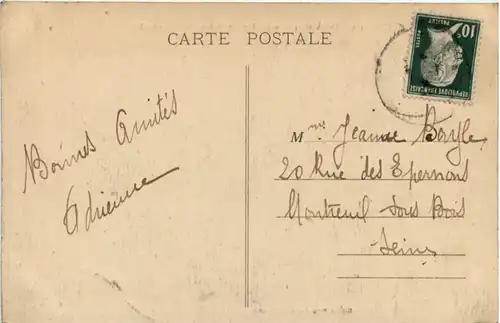 CARTE POSTALE
10c
POSTES
REPUBLIQUE FRANÇAISE
Bonnes Amitiés
Adrienne
Mme Jeanne Bayle
20 Rue des Epernons
Montreuil sous Bois
Seine